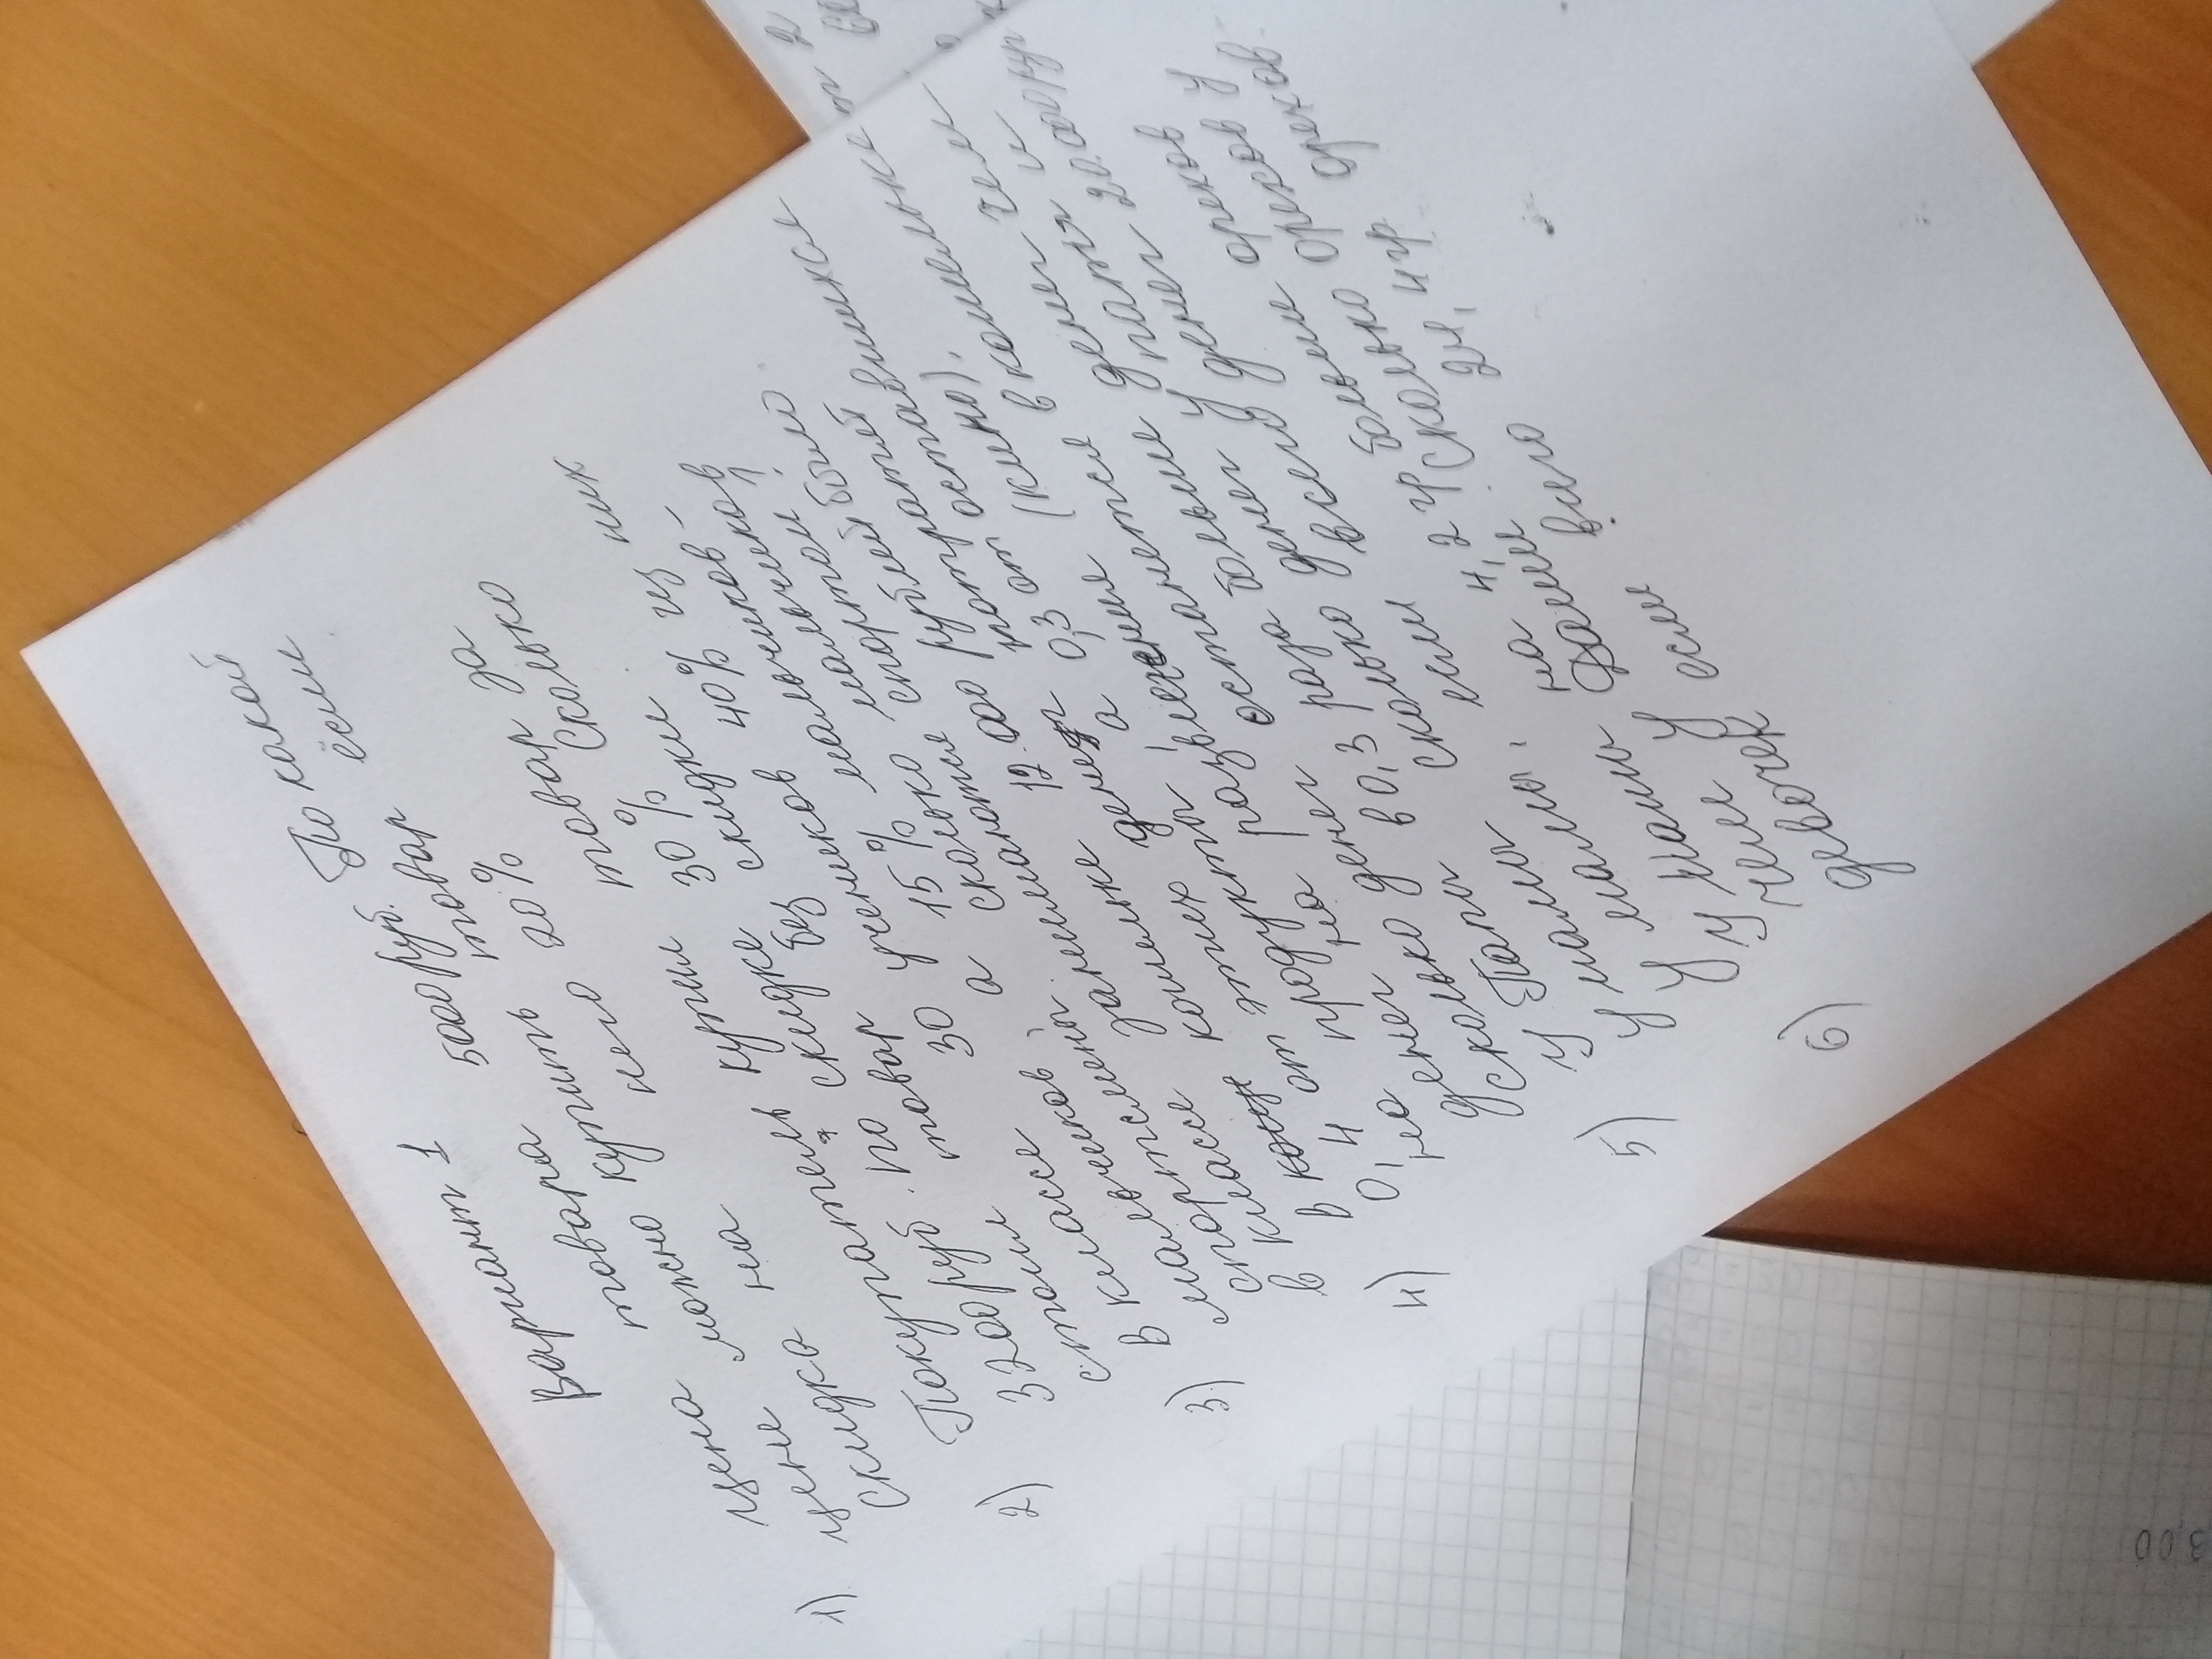 Вариант 1
1) Цена товара 5000 руб. По какой
цене можно купить товар если
скидка на него 20%
2) Покупатель купил товар за
3200 руб. по скидке 30% Сколько
стоил товар без скидки.
3) В классе 30 учеников 40% из них
мальчиков, а 15% мальчиков -
спортсмены. сколько мальчиков
в классе занимаются спортом?
4) В кошельке 12.000 рублей было.
0,4 от этих денег потратят
на продукты, а 0,3 от оставшихся
денег на развлечения (кино).
Сколько денег останется в кошельке
5) У Папы в 0,3 раза больше денег чем
у мамы сколько денег у папы и
у мамы, если всего денег 20.000 руб
6) У Маши на 4,2 гр больше орехов
чем у Даши. Сколько орехов у
девочек если всего 24,4 гр орехов.
т 2
3,00